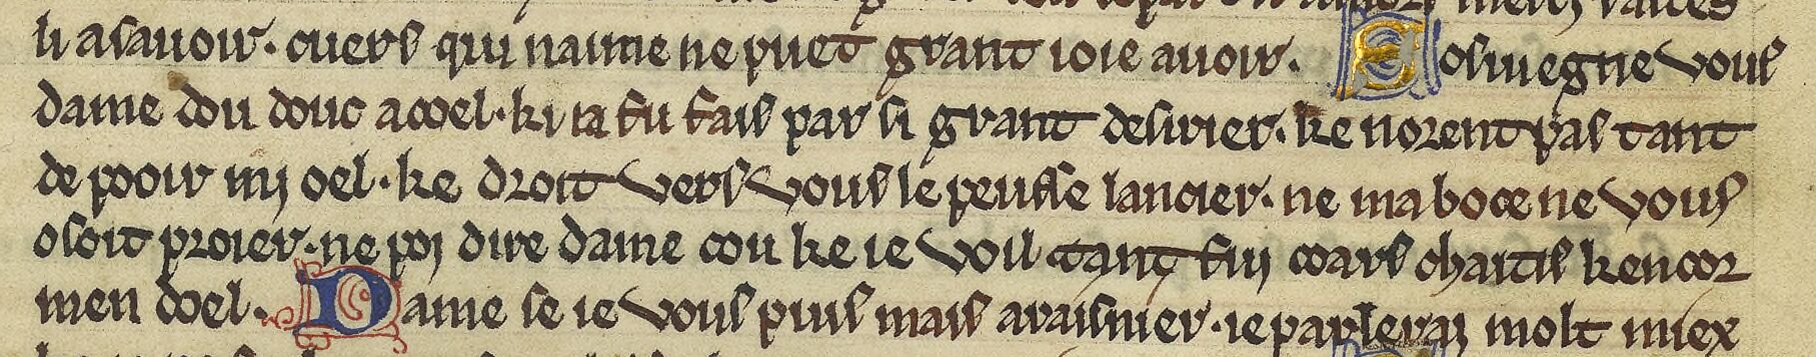 li asauoir. cuers qui naime ne puet grant ioie auoir. Eosuiegne vous
dame dou douc acoel. ki ia fu fais par si grant desirier. ke norent pas tant
de pooir mj oel. ke droit vers vous le peusse lancier. ne ma boce ne vous
osoit proier. ne poj dire dame cou ke ie voil tant fuj coars chaitis kencor
men doel. Dame se ie vous puis mais araisnier. ie parleraj molt miex